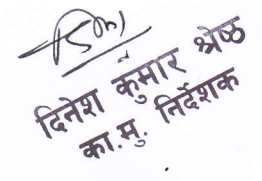 दिनेश कुमार श्रेष्ठ
का.मु. निर्देशक